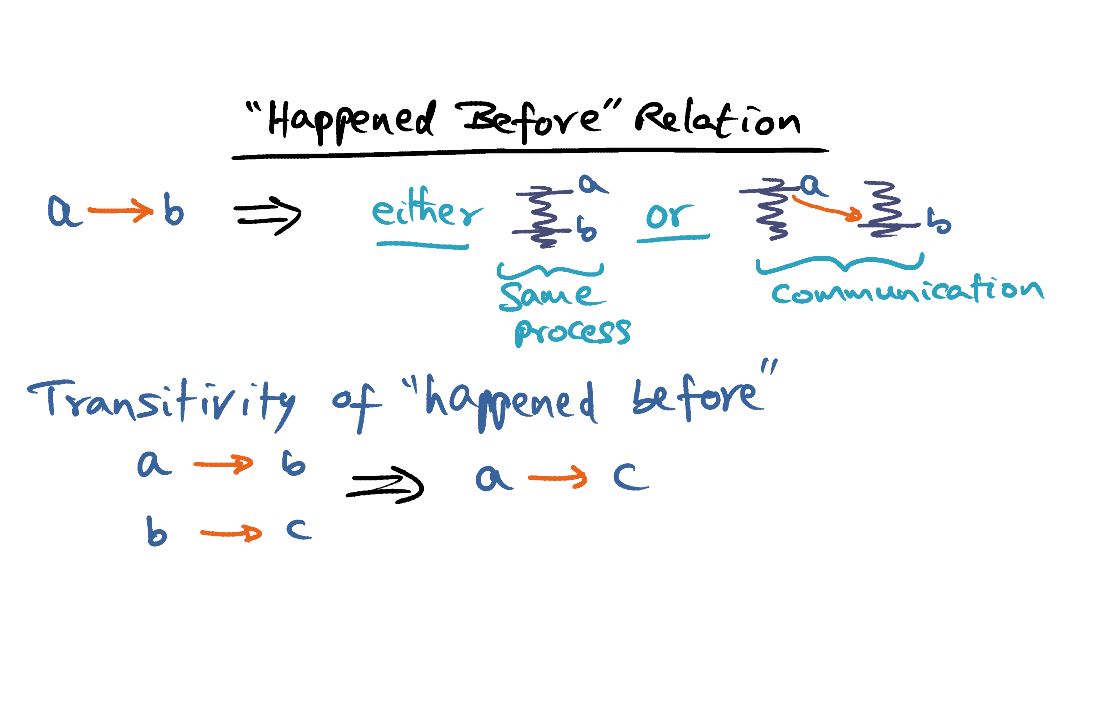 "Happened Before" Relation
a → b ⇒ either a b or a b
same process communication
Transitivity of "happened before"
a → b
⇒ a → c
b → c